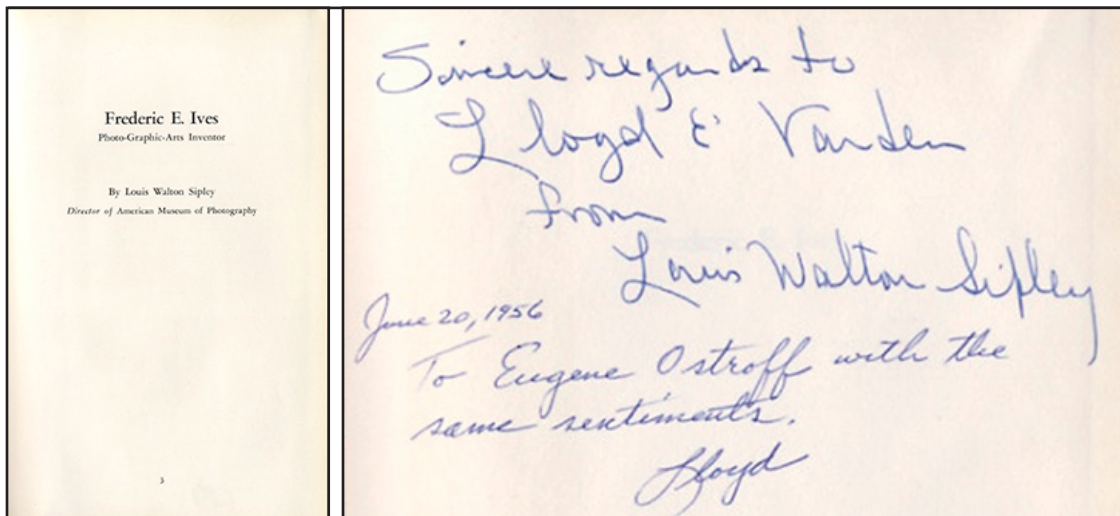 Frederic E. Ives
Photo-Graphic-Arts Inventor
By Louis Walton Sipley
Director of American Museum of Photography
3
Sincere regards to
Lloyd E Varden
from
Louis Walton Sipley
June 20, 1956
To Eugene Ostroff with the
same sentiments.
Lloyd